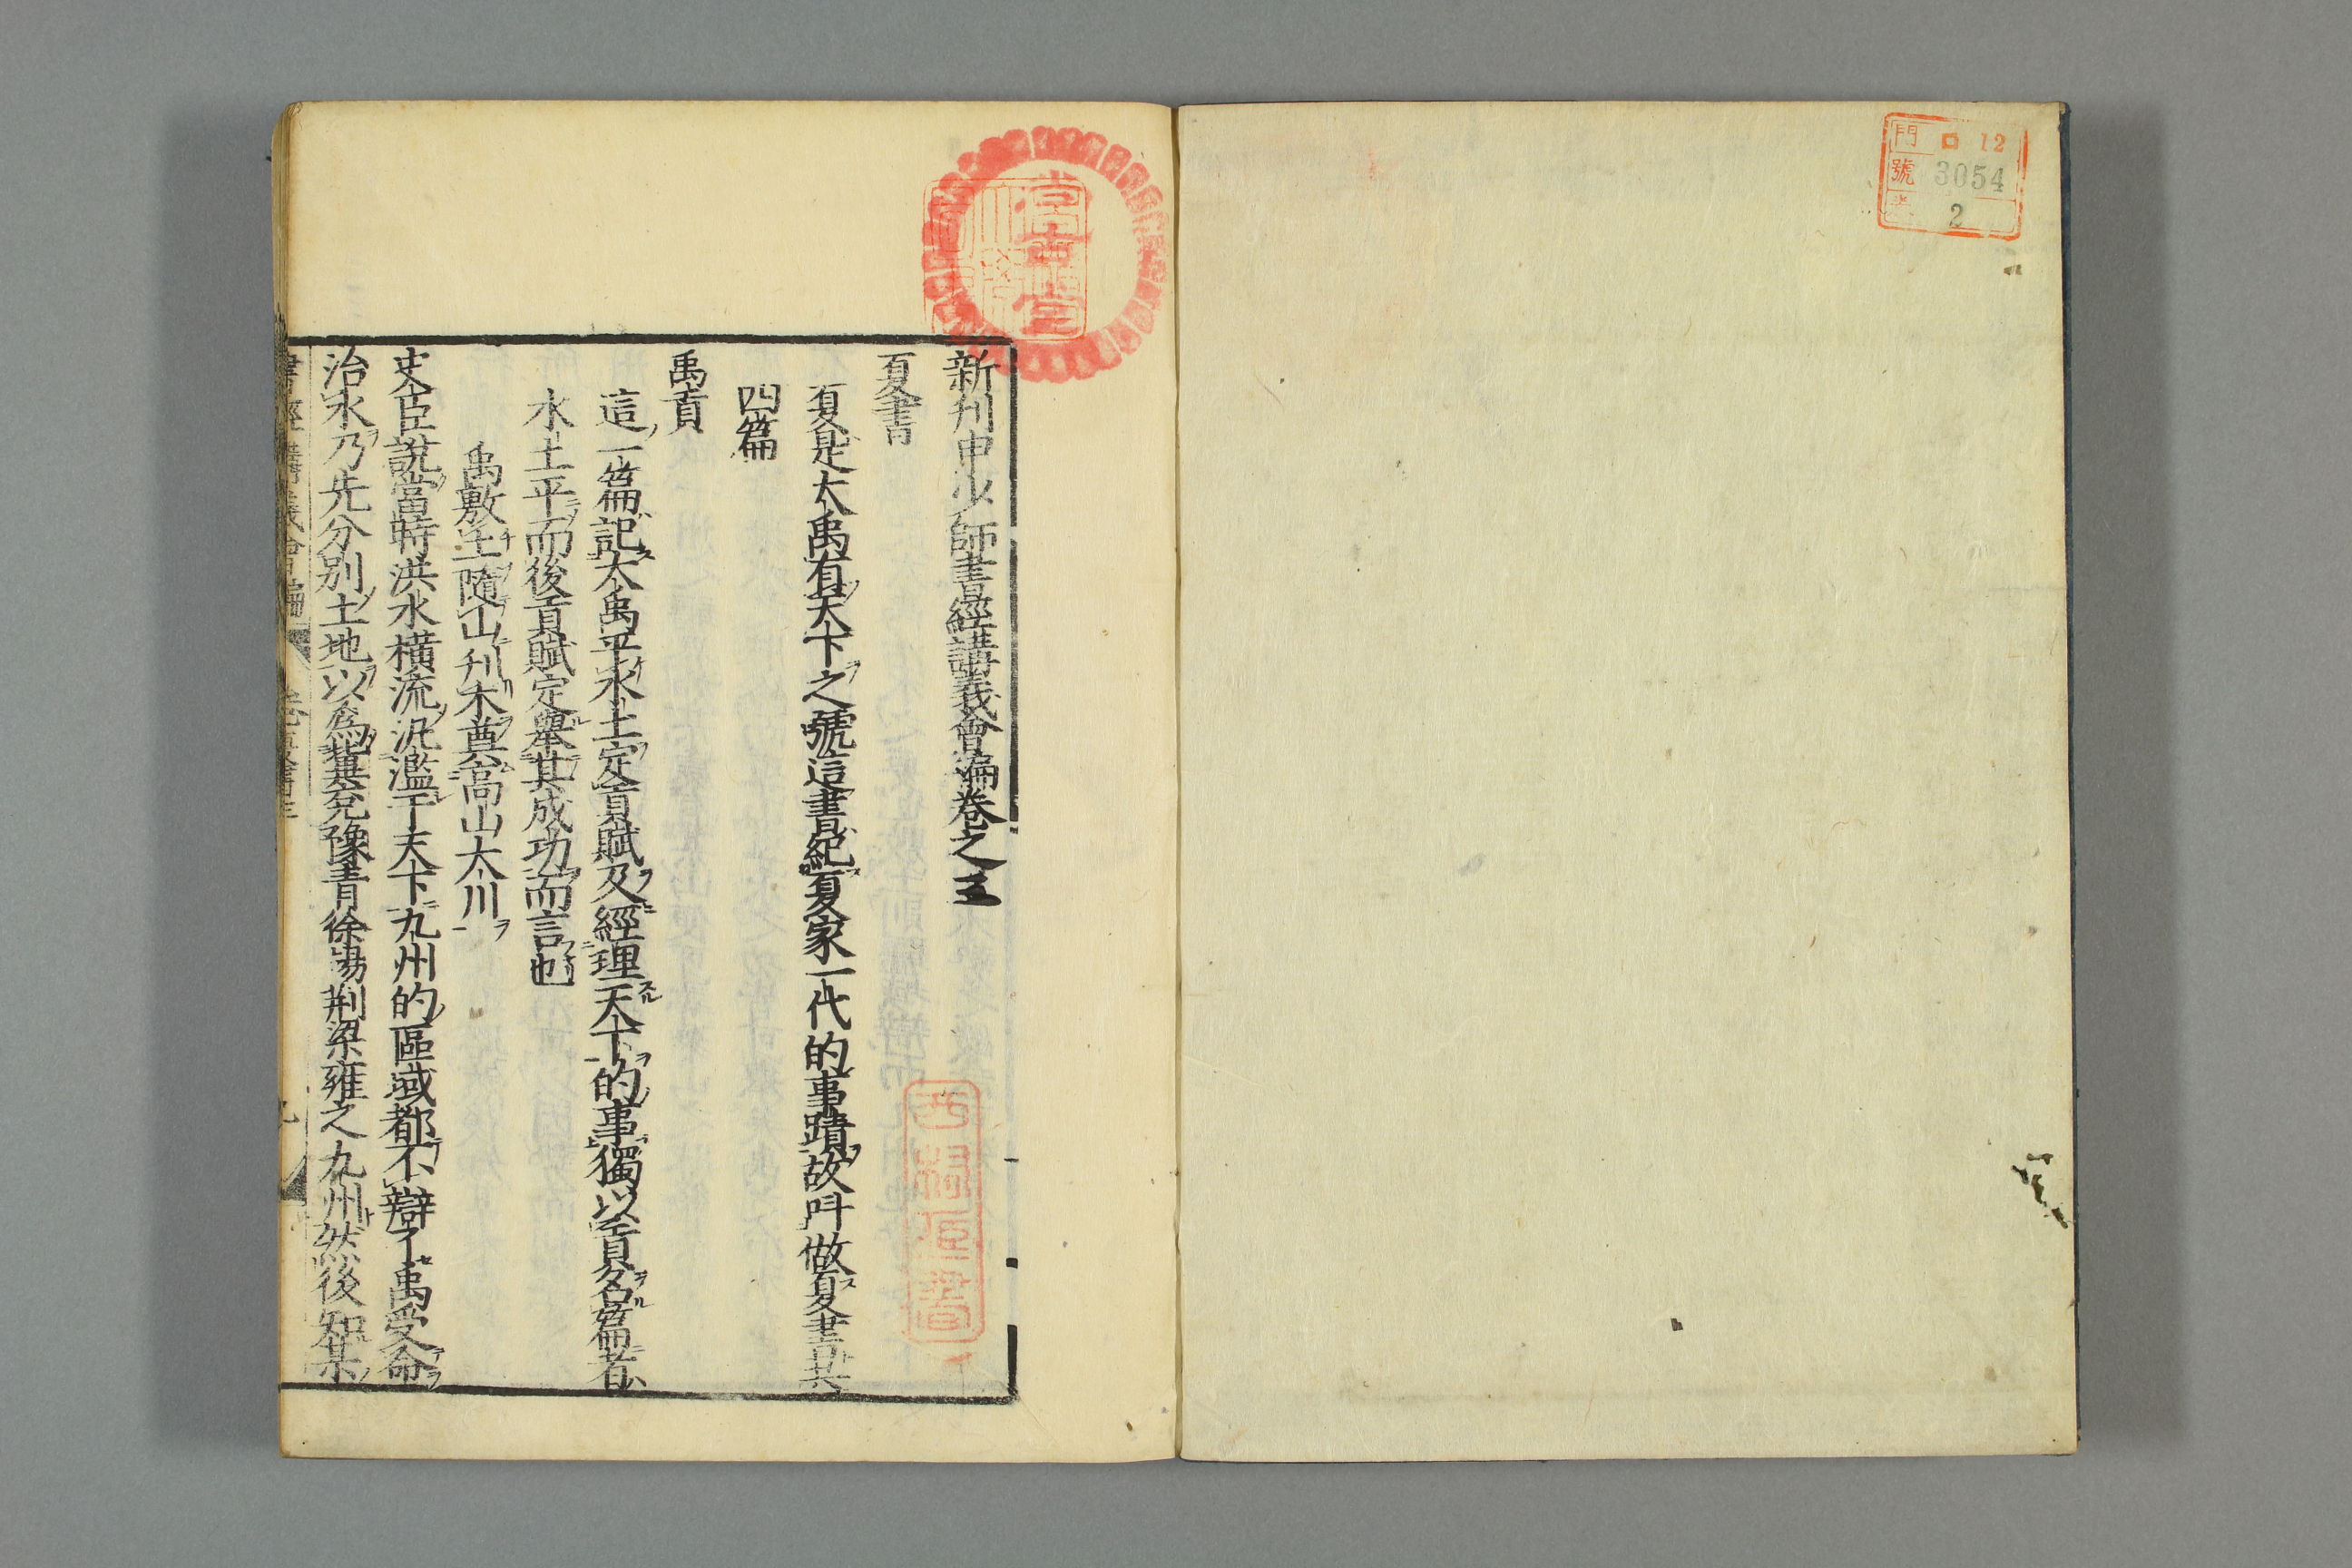 門 ロ 12
號 3054
卷 2
新刊申少師書經講義會編卷之三
夏書
夏是大禹有天下之號這書紀夏家一代的事蹟故叫做夏書共
四篇
禹貢
這一篇記大禹平水土定貢賦及經理天下的事獨以貢名篇者
水土平而後貢賦定舉其成功而言也
禹敷土隨山刊木奠高山大川
史臣說當時洪水橫流汎濫于天下九州的區域都不辯了禹受命
治水乃先分别土地以爲冀兗豫青徐揚荆梁雍之九州然後知某